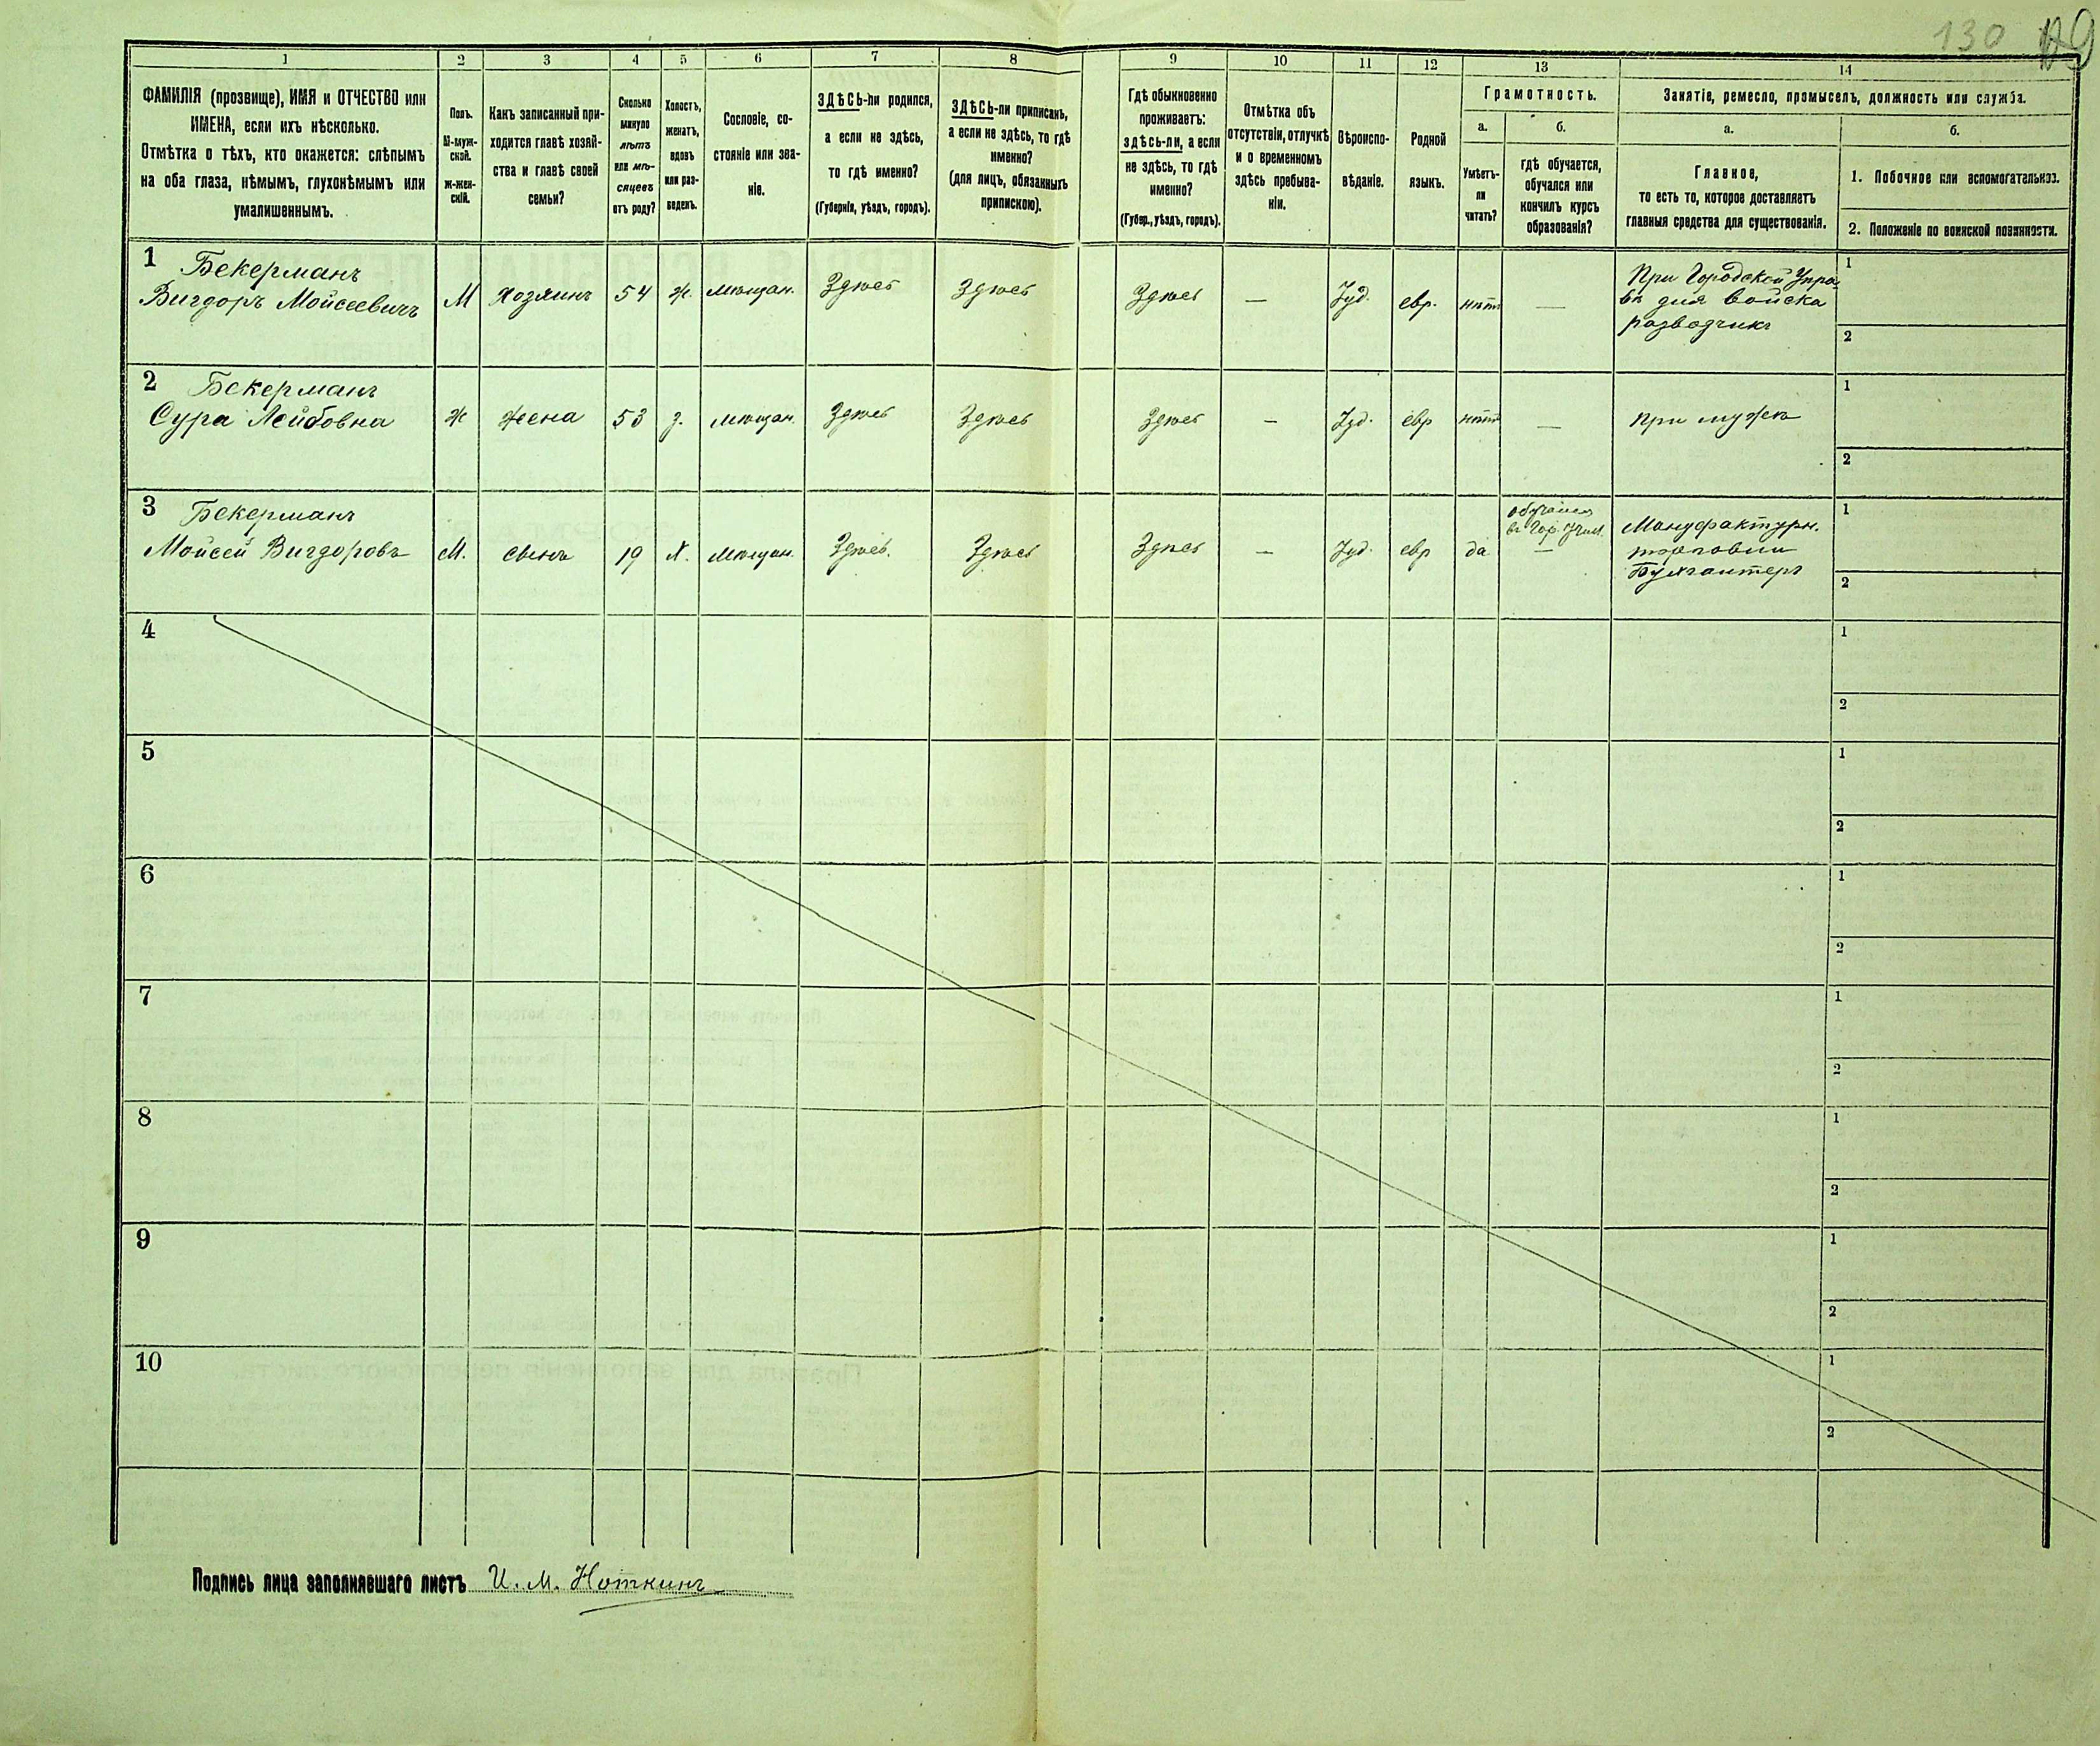 130 129
1 2 3 4 5 6 7 8 9 10 11 12 13 14
ФАМИЛІЯ (прозвище), ИМЯ и ОТЧЕСТВО или
ИМЕНА, если ихъ нѣсколько.
Отмѣтка о тѣхъ, кто окажется: слѣпымъ
на оба глаза, нѣмымъ, глухонѣмымъ или
умалишеннымъ.
Полъ.
М-муж-
ской.
ж-жен-
скій.
Какъ записанный при-
ходится главѣ хозяй-
ства и главѣ своей
семьи?
Сколько
минуло
лѣтъ
или мѣ-
сяцевъ
отъ роду?
Холостъ,
женатъ,
вдовъ
или раз-
веденъ.
Сословіе, со-
стояніе или зва-
ніе.
ЗДѢСЬ-ли родился,
а если не здѣсь,
то гдѣ именно?
(Губернія, уѣздъ, городъ).
ЗДѢСЬ-ли приписанъ,
а если не здѣсь, то гдѣ
именно?
(для лицъ, обязанныхъ
припискою).
Гдѣ обыкновенно
проживаетъ:
здѣсь-ли, а если
не здѣсь, то гдѣ
именно?
(Губер., уѣздъ, городъ).
Отмѣтка объ
отсутствіи, отлучкѣ
и о временномъ
здѣсь пребыва-
ніи.
Вѣроиспо-
вѣданіе.
Родной
языкъ.
Грамотность.
а.
Умѣетъ-
ли
читать?
б.
гдѣ обучается,
обучался или
кончилъ курсъ
образованія?
Занятіе, ремесло, промыселъ, должность или служба.
а.
Главное,
то есть то, которое доставляетъ
главныя средства для существованія.
б.
1. Побочное или вспомогательное.
2. Положеніе по воинской повинности.
1 Бекерманъ
Вигдоръ Мойсеевичъ М Хозяинъ 54 ж. мѣщан. Здѣсь Здѣсь Здѣсь — Іуд. евр. нѣтъ — При Городской Упра-
вѣ для войска
разводчикъ
1
2
2 Бекерманъ
Сура Лейбовна ж жена 53 з. мѣщан. Здѣсь Здѣсь Здѣсь — Іуд. евр нѣтъ — при мужѣ
1
2
3 Бекерманъ
Мойсей Вигдоровъ М. сынъ 19 х. мѣщан. Здѣсь. Здѣсь Здѣсь — Іуд. евр да
обучался
въ Гор. Учил.
—
Мануфактурн.
торговли
Бухгалтеръ
1
2
4 1
2
5 1
2
6 1
2
7 1
2
8 1
2
9 1
2
10 1
2
Подпись лица заполнявшаго листъ И. М. Ноткинъ